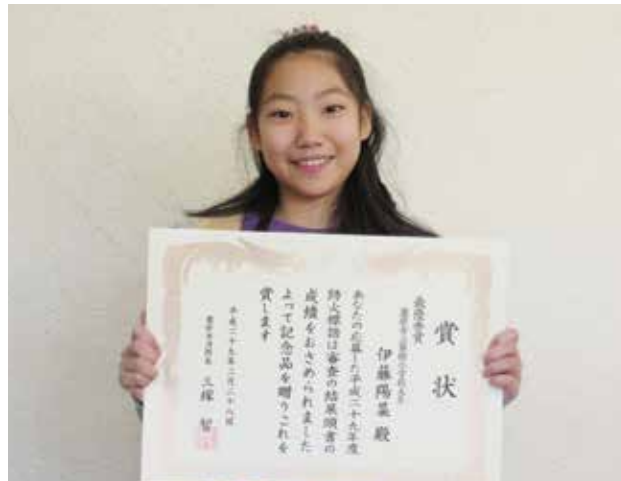 賞状
最優秀賞
伊藤陽菜 殿
あなたの応募した平成二十九年度
防火標語は審査の結果頭書の
成績をおさめられました
よって記念品を贈りこれを
賞します
平成二十九年二月二十八日
三塚 智